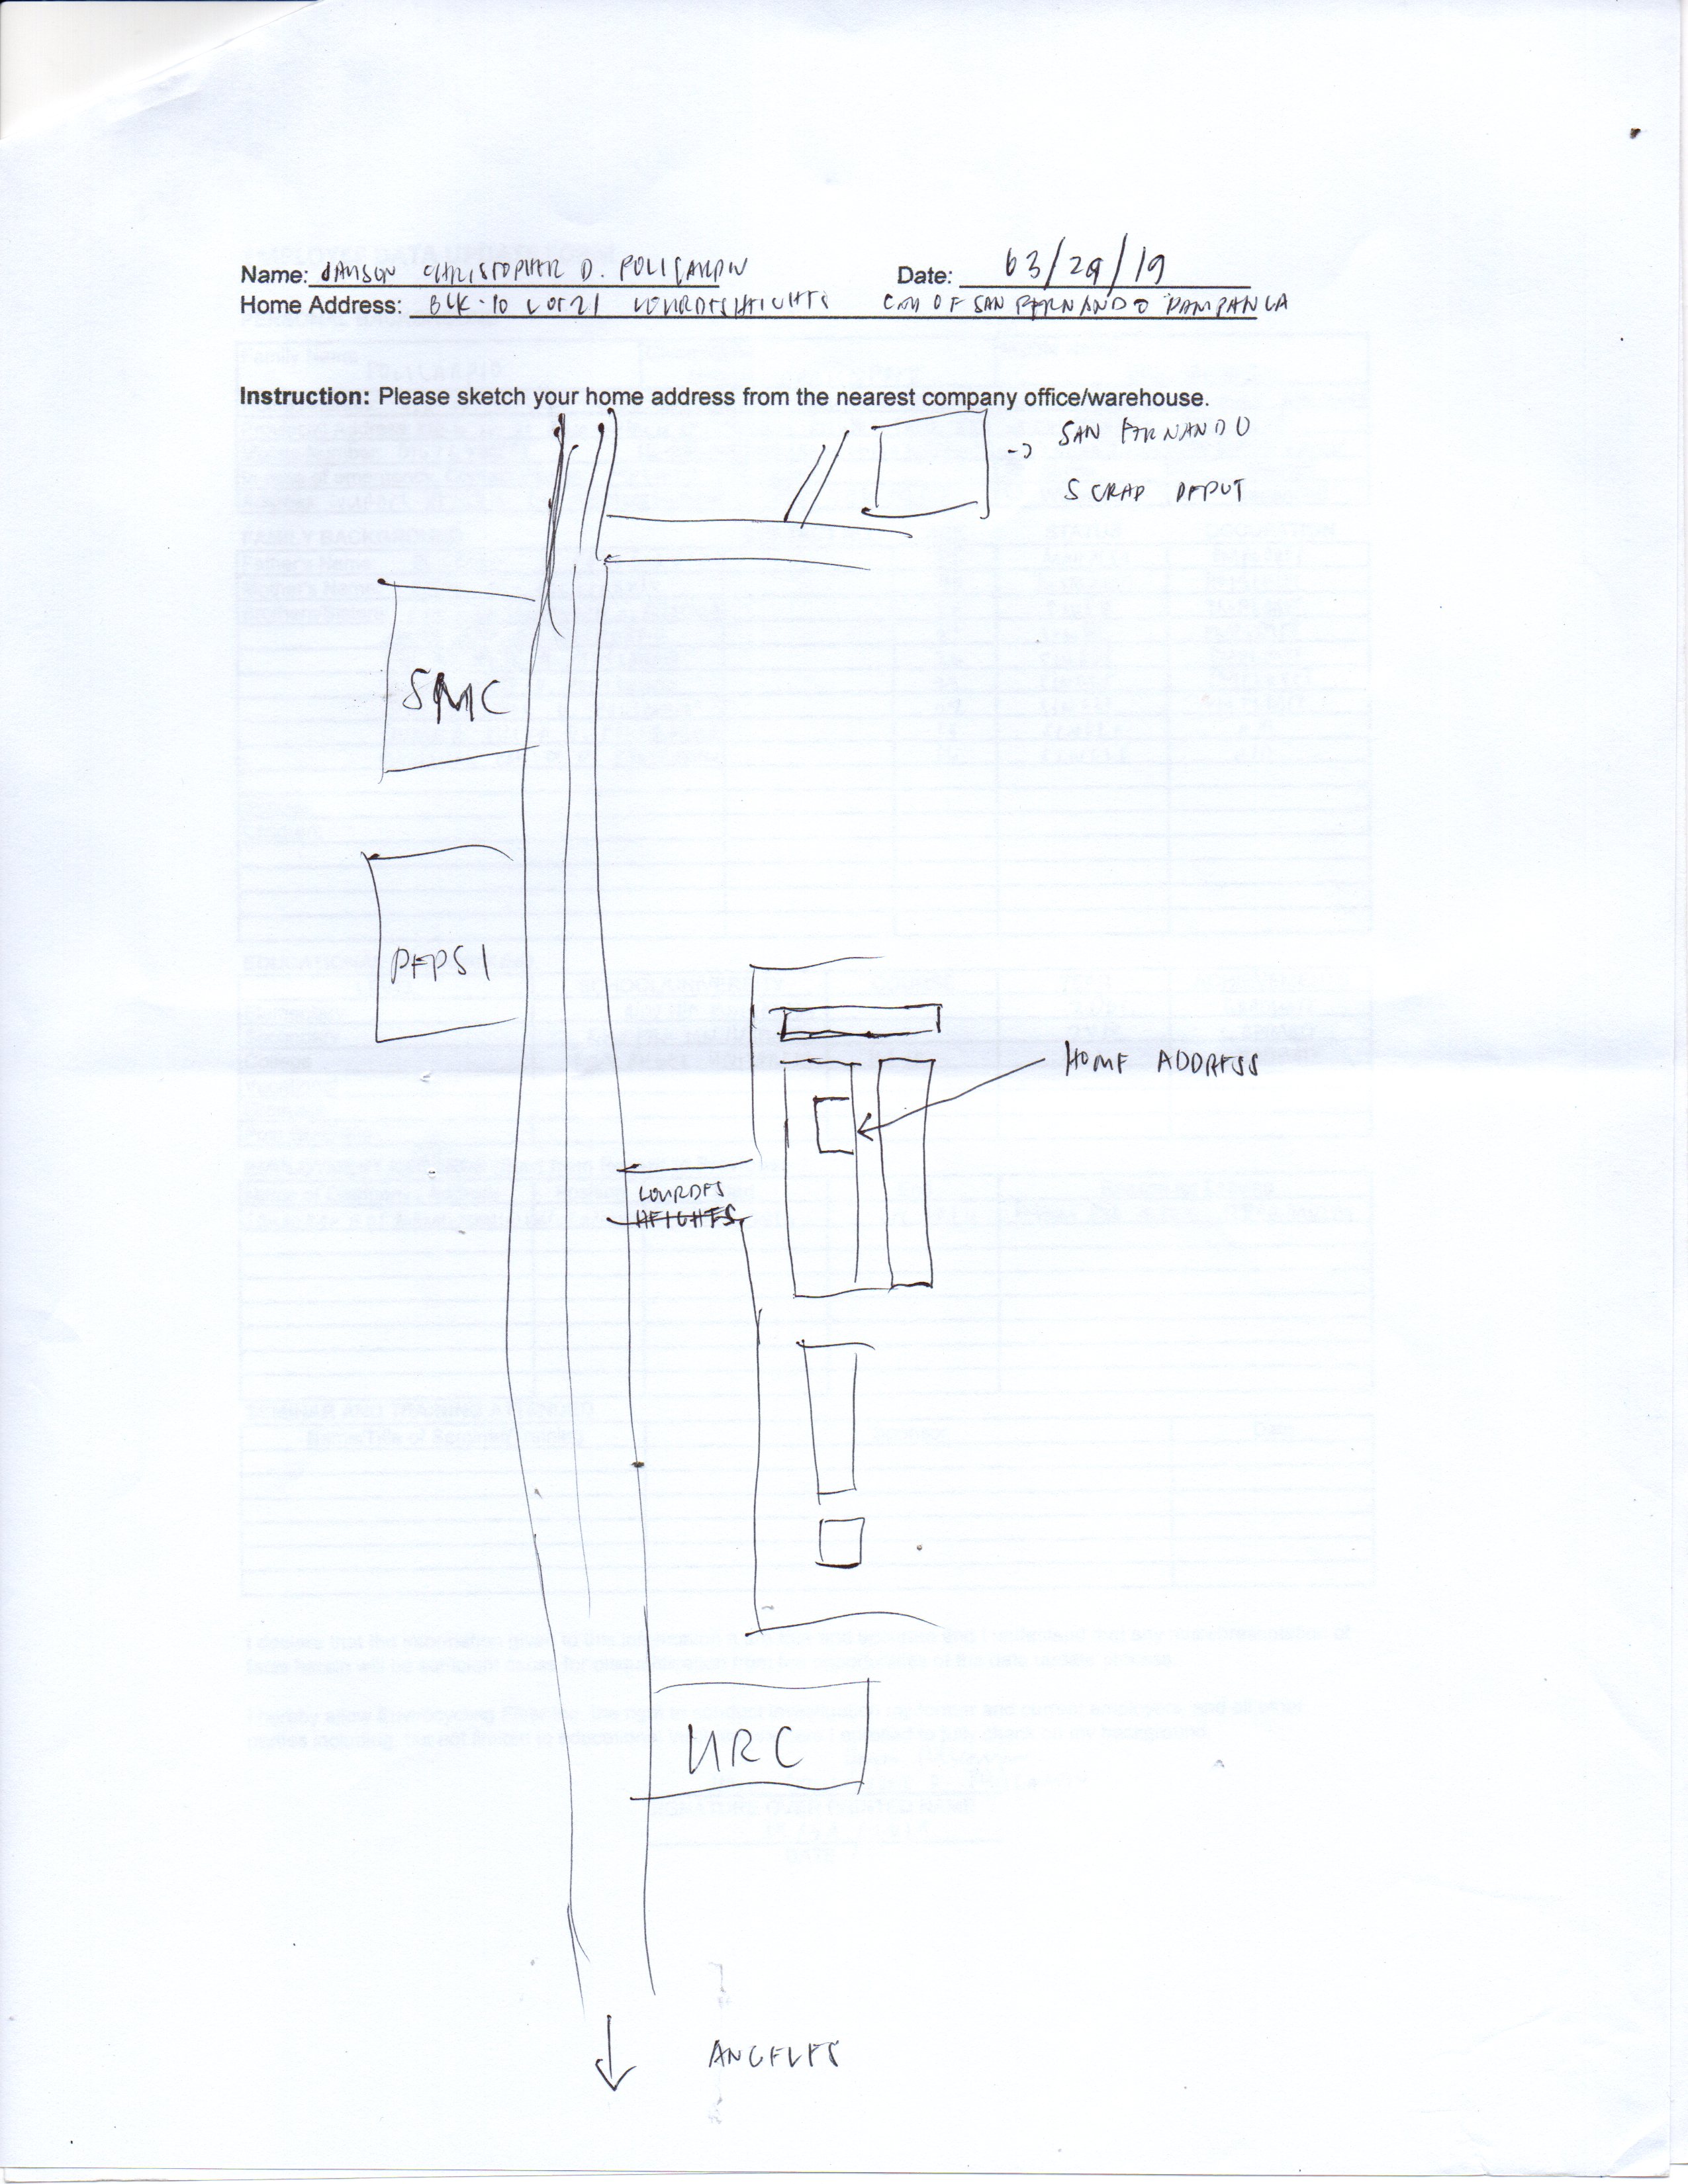 Name: JAMSON CHRISTOPHER D. POLICARPIO Date: 03/29/19
Home Address: BLK-10 LOT 21 LOURDES HEIGHTS CITY OF SAN FERNANDO PAMPANGA
Instruction: Please sketch your home address from the nearest company office/warehouse.
SAN FERNANDO
SCRAP DEPOT
SMC
PEPSI
HOME ADDRESS
LOURDES
HEIGHTS
URC
ANGELES